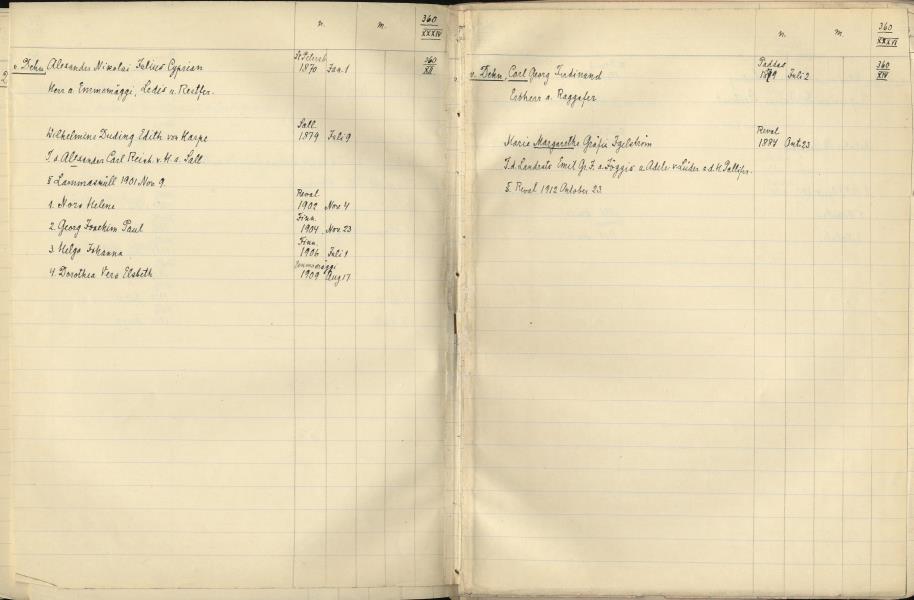 n. m. 360
XXXIV
St Petersb.
v. Dehn, Alexander Nikolai Julius Cyprian 1870 Jan. 1 360
XII
Herr a. Emmomäggi, Ledis u. Restfer.
Sall.
Wilhelmine Duding Edith von Harpe 1879 Juli 9
T. d. Alexander Carl Reich v. H. a. Sall
§ Lammasküll 1901 Nov 9.
Reval
1. Nora Helene 1902 Nov 4
Finn.
2. Georg Joachim Paul 1904 Nov. 23
Finn.
3. Helga Johanna 1906 Juli 1
Emmomäggi
4. Dorothea Vera Elsbeth 1909 Aug 17
2
n. m. 360
XXXVI
Paddas
v. Dehn, Carl Georg Ferdinand Juli 2 360
XIV
Erbherr a. Raggafer
Reval
Maria Margarethe Gräfin Igelström 1884 Oct. 23
T. d. Landrats Emil Gr. I. a. Höggis u. Adele v. Lüder a. d. H. Pallifer.
§ Reval 1912 October 23